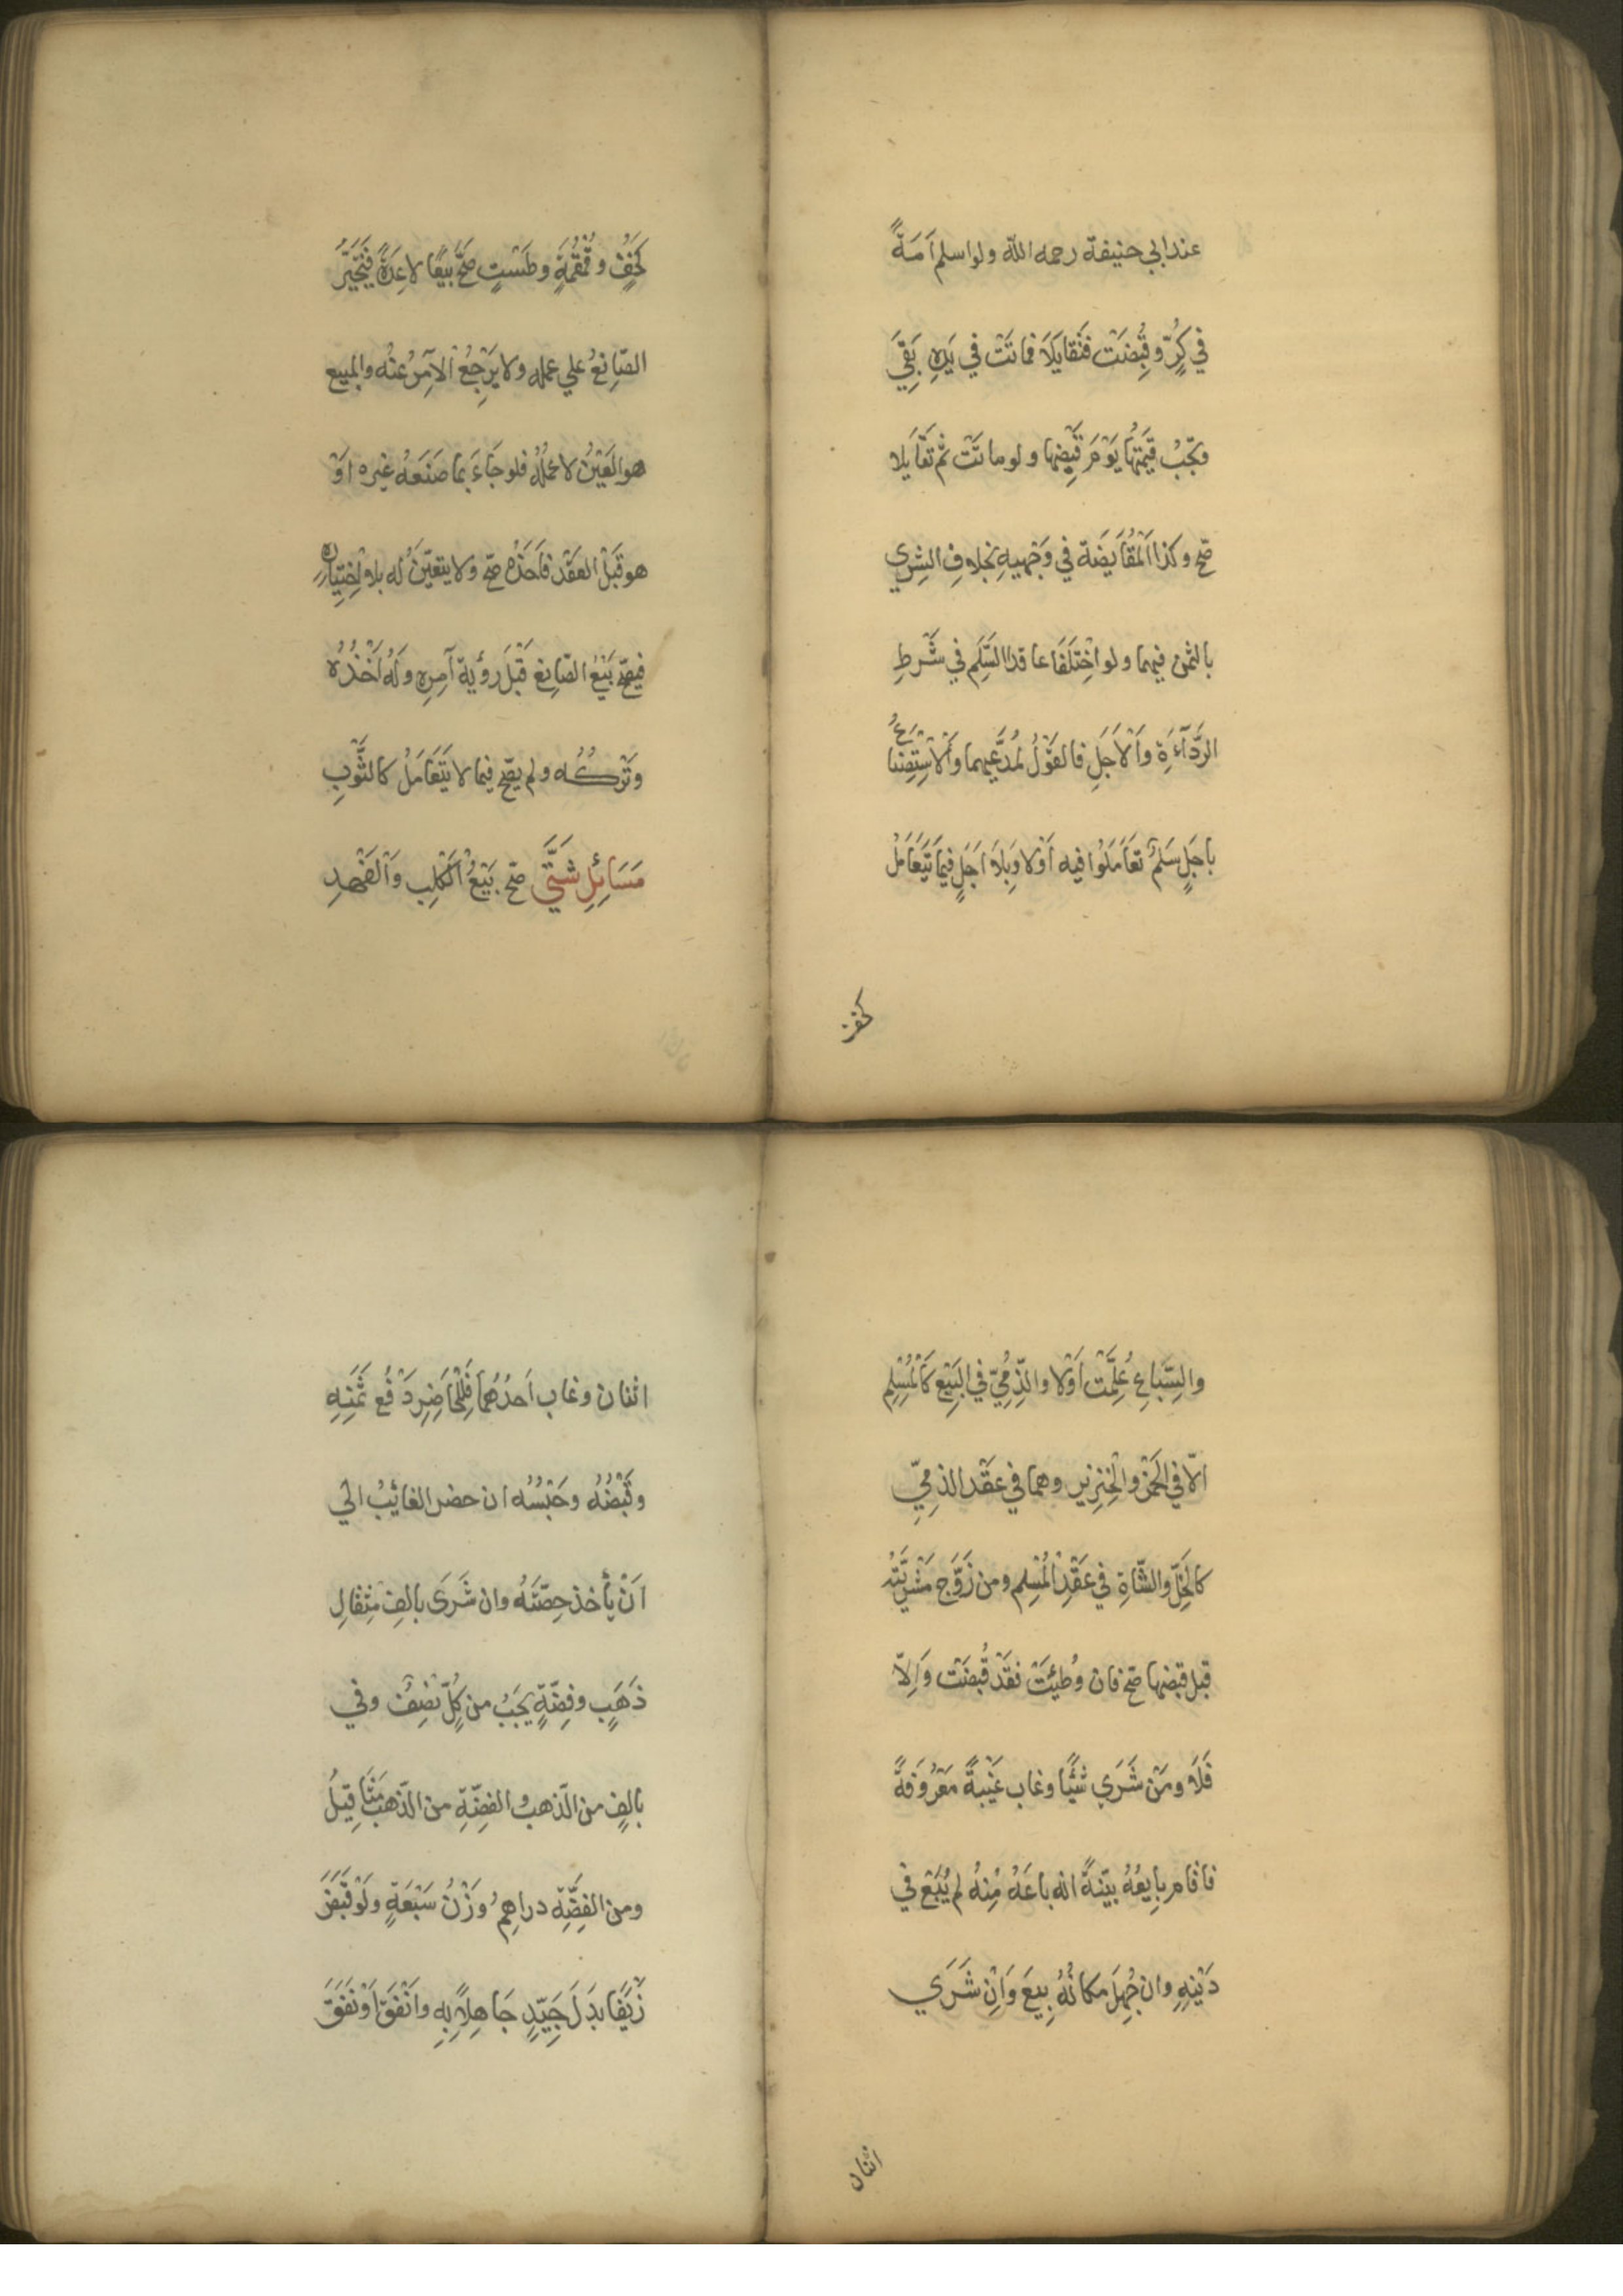 عند ابي حنيفة رحمه الله ولو اسلم اَمَةً
في كُرٍّ وقُبِضَت فَتَقايَلَا فماتَتْ في يَدِهِ بَقِيَ
وتَجِبُ قِيمَتُها يَوْمَ قَبْضِها ولو ماتَتْ ثم تَقَايلا
صَحّ وكذا اَلْمُقَايَضَة في وَجْهيهِ بخلافِ الشِرِي
بالثمن فيهما ولو اخْتَلَفَا عاقدا السَّلَم في شَرطِ
الرَّدَآءَةِ وَاْلاَجَلِ فالقَوْلُ لمُدَّعِيهما وَاْلاِسْتِصْناعُ
باَجَلٍ سَلَمٌ تَعَامَلُوا فيه اَوْلا وَبِلَا اَجَلٍ فيمَا يُتَعَامَلُ
كخفٍ
كَخُفٍّ وقُمْقُمَةٍ وطَسْتٍ صَحَّ بَيْعًا لا عِدَةً فَيُجْبَرُ
الصّانِعُ علي عمله ولا يَرْجِعُ اْلآمِرُ عنْه والمبيع
هو العَيْنُ لا عَمَلُهُ فلو جَاءَ بما صَنَعَهُ غيره اَوْ
هو قَبْلَ العَقْد فاَخَذَهُ صَحّ ولا يتعيَّنُ له بلا اِخْتِيارِهِ
فيصحّ بَيْعُ الصّانِع قَبْلَ رؤية آمِرِهِ وَلَهُ اَخْذُهُ
وَتَرْكُه ولم يصحّ فيما لا يُتَعَامَلُ كالثَّوْبِ
مَسَائِلِ شَتَّي صَحّ بَيْعُ اْلكَلْبِ وَاْلفَهْدِ
والسِّبَاعِ عُلِّمَتْ اَوْلا والذِّمِّيّ في البَيْعِ كَاْلمُسْلِمِ
الّا في الخَمْرِ والْخِنْزِير وهما في عَقْدِ الذِمِّيِّ
كالخَلِّ والشّاةِ في عَقْدِ اْلمُسْلِمِ ومن زَوَّج مَشْرِيَّتَهُ
قبل قبضها صَحّ فان وُطِئَتْ فقَدْ قُبِضَتْ وَاِلاّ
فَلَا ومَنْ شَرَي شَيْئًا وغاب غَيْبَةً مَعْرُوفَةً
فاقام بايِعُهُ بيّنةً انه باعَهُ مِنْهُ لم يُبَعْ في
دَيْنِهِ وان جُهِلَ مكانُهُ بِيعَ وَاِنْ شَرَي
اثنان
اثنان وغاب اَحدُهُمَا فَلِلْحَاضِرِ دَفْعُ ثَمَنِهِ
وقَبْضُهُ وحَبْسُهُ ان حضر الغائِبُ الي
اَنْ يأخذ حِصّتَهُ وان شَرَى بالف مِثقالِ
ذَهَبٍ وفِضَّةٍ يَجِبُ من كُلٍّ نِصْفٌ وفي
بالفٍ من الذّهب والفِضّةِ من الذّهب مَثَاقِيلُ
ومن الفِضَّةِ دراهِمُ وَزْنُ سَبْعَةٍ وَلَوْ قَبَضَ
زَيْفًا بدَلَ جَيِّدٍ جَاهِلاً بِهِ وانْفَقَ اَوْنَفَقَ